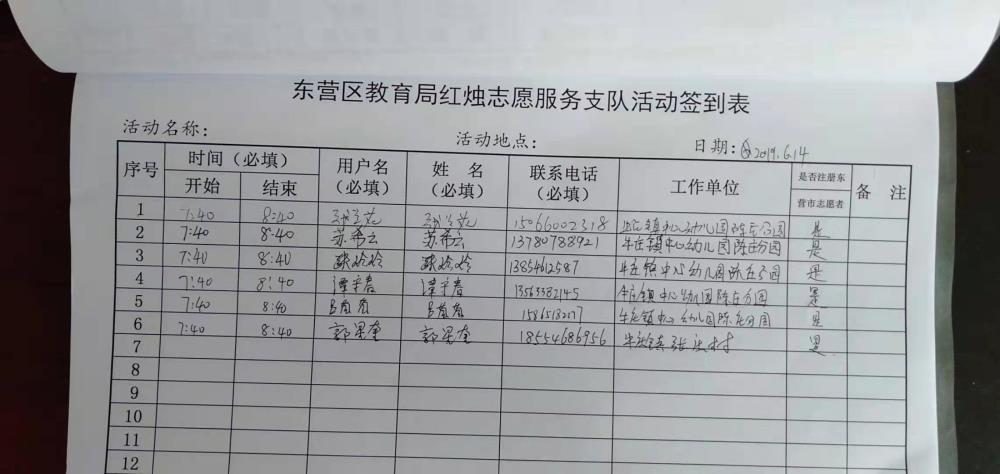 东营区教育局红烛志愿服务支队活动签到表
活动名称: 活动地点: 日期: 2019.6.14
序号 时间（必填） 用户名（必填） 姓名（必填） 联系电话（必填） 工作单位 是否注册东营市志愿者 备注
开始 结束
1 7:40 8:40 15066002318 镇中心幼儿园陈庄分园 是
2 7:40 8:40 苏希云 苏希云 13780788921 牛庄镇中心幼儿园陈庄分园 是
3 7:40 8:40 13854612587 牛庄镇中心幼儿园陈庄分园 是
4 7:40 8:40 13563382145 牛庄镇中心幼儿园陈庄分园 是
5 7:40 8:40 牛庄镇中心幼儿园陈庄分园 是
6 7:40 8:40 郭 郭 18554686956 牛庄镇张庄村 是
7
8
9
10
11
12